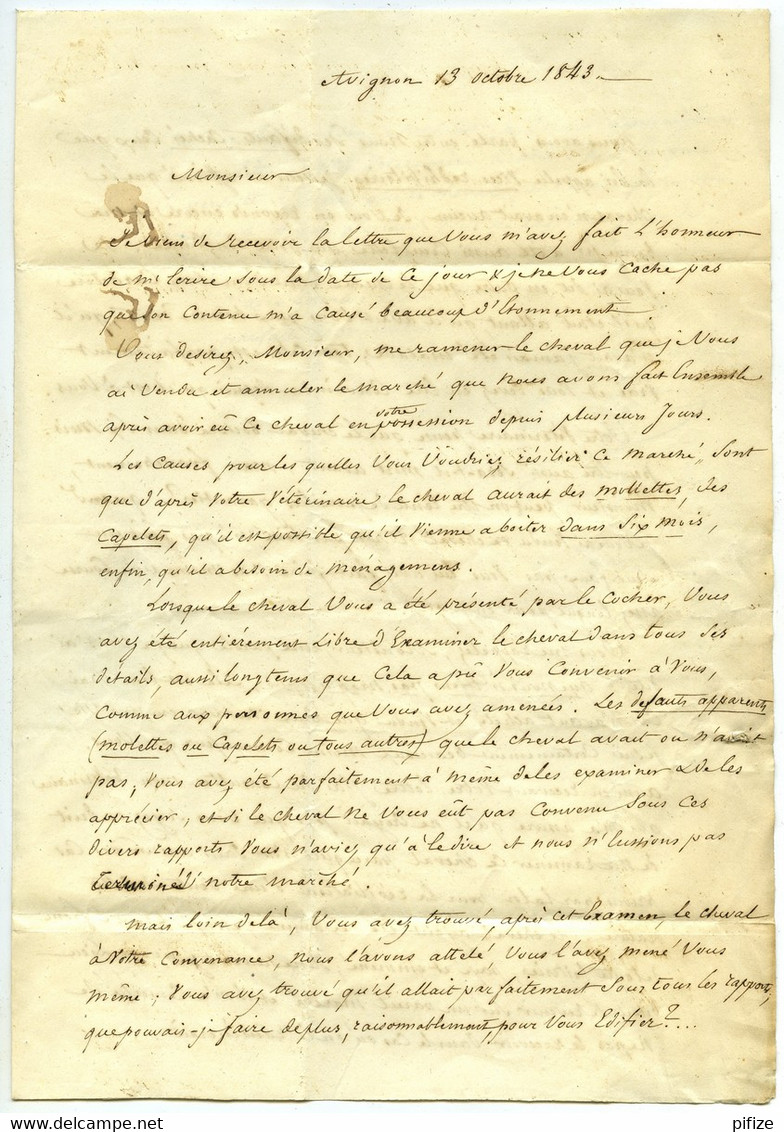 Avignon 13 octobre 1843.
Monsieur
Je viens de recevoir la lettre que Vous m'avez fait L'honneur
de m'Ecrire sous la date de Ce jour & je ne Vous Cache pas
que son Contenu m'a Causé beaucoup d'Etonnement.
Vous desirez, Monsieur, me ramener le cheval que je Vous
ai Vendu et annuler le marché que Nous avons fait Ensemble
après avoir eû Ce cheval en votre possession depuis plusieurs Jours.
Les Causes pour les quelles Vous Voudriez résilier Ce marché, sont
que d'après Votre Vétérinaire le cheval aurait des mollettes, des
Capelets, qu'il est possible qu'il Vienne a boiter dans Six mois,
enfin, qu'il a besoin de ménagemens.
Lorsque le cheval Vous a été présenté par le Cocher, Vous
avez été entiérement Libre d'Examiner le cheval dans tous Ses
détails, aussi longtems que Cela a pû Vous Convenir à Vous,
Comme aux personnes que Vous avez amenées. Les defauts apparents
(molettes ou Capelets ou tous autres) que le cheval avait ou n'avait
pas, Vous avez été parfaitement à même de les examiner & de les
apprécier, et si le cheval Ne Vous eût pas Convenu Sous Ces
divers rapports Vous n'aviez qu'à le dire et nous n'Eussions pas
terminé notre marché.
Mais loin de là, Vous avez trouvé, après cet Examen, le cheval
à Votre Convenance, Nous l'avons attelé, Vous l'avez mené Vous
même; Vous avez trouvé qu'il allait parfaitement Sous tous les rapports,
que pouvais-je faire de plus, raisonnablement pour Vous Edifier?...
pifize